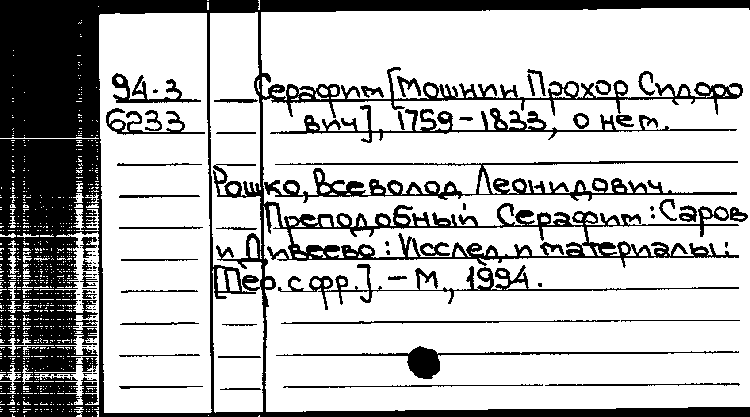 94-3 Серафим [Мошнин, Прохор Сидоро
6233 вич], 1759-1833, о нем.
Рошко, Всеволод Леонидович.
Преподобный Серафим: Саров
и Дивеево: Исслед. и материалы:
[Пер. с фр.]. - М., 1994.